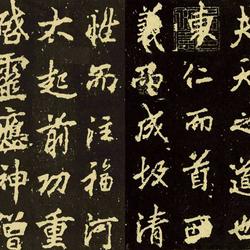 夫天之道也
東仁而首西
義而成故清
而注福河
大起前功重
啓靈應神僧